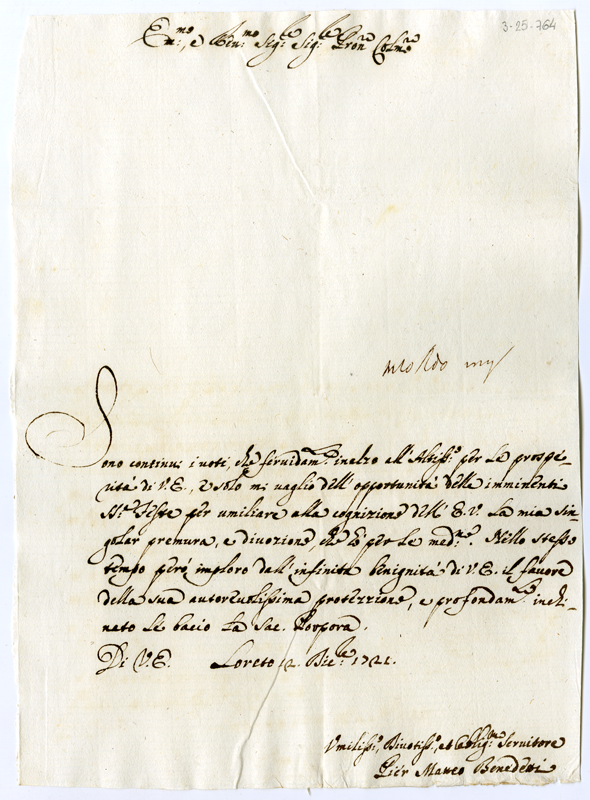 3-25-764
Em:mo, e Rev:mo Sig:re Sig:re Pron:e Colmo
Sono continui i voti, che fervidam:e inalzo all'Altiss:o per le prospe-
rità di V.E., e solo mi vaglio dell'opportunità delle imminenti
SS:e Feste per umiliare alla cognizione dell'E.V. la mia sin-
golar premura, e divozione, che ò per le med:me. Nello stesso
tempo però imploro dall'infinita benignità di V.E. il favore
della sua autorevolissima protezzione, e profondam:e inchi-
nato le bacio la Sac. Porpora.
Di V.E. Loreto 12 Bre: 1721.
Umiliss:, Divotiss:, et Obblig:mo Servitore
Pier Matteo Benedetti